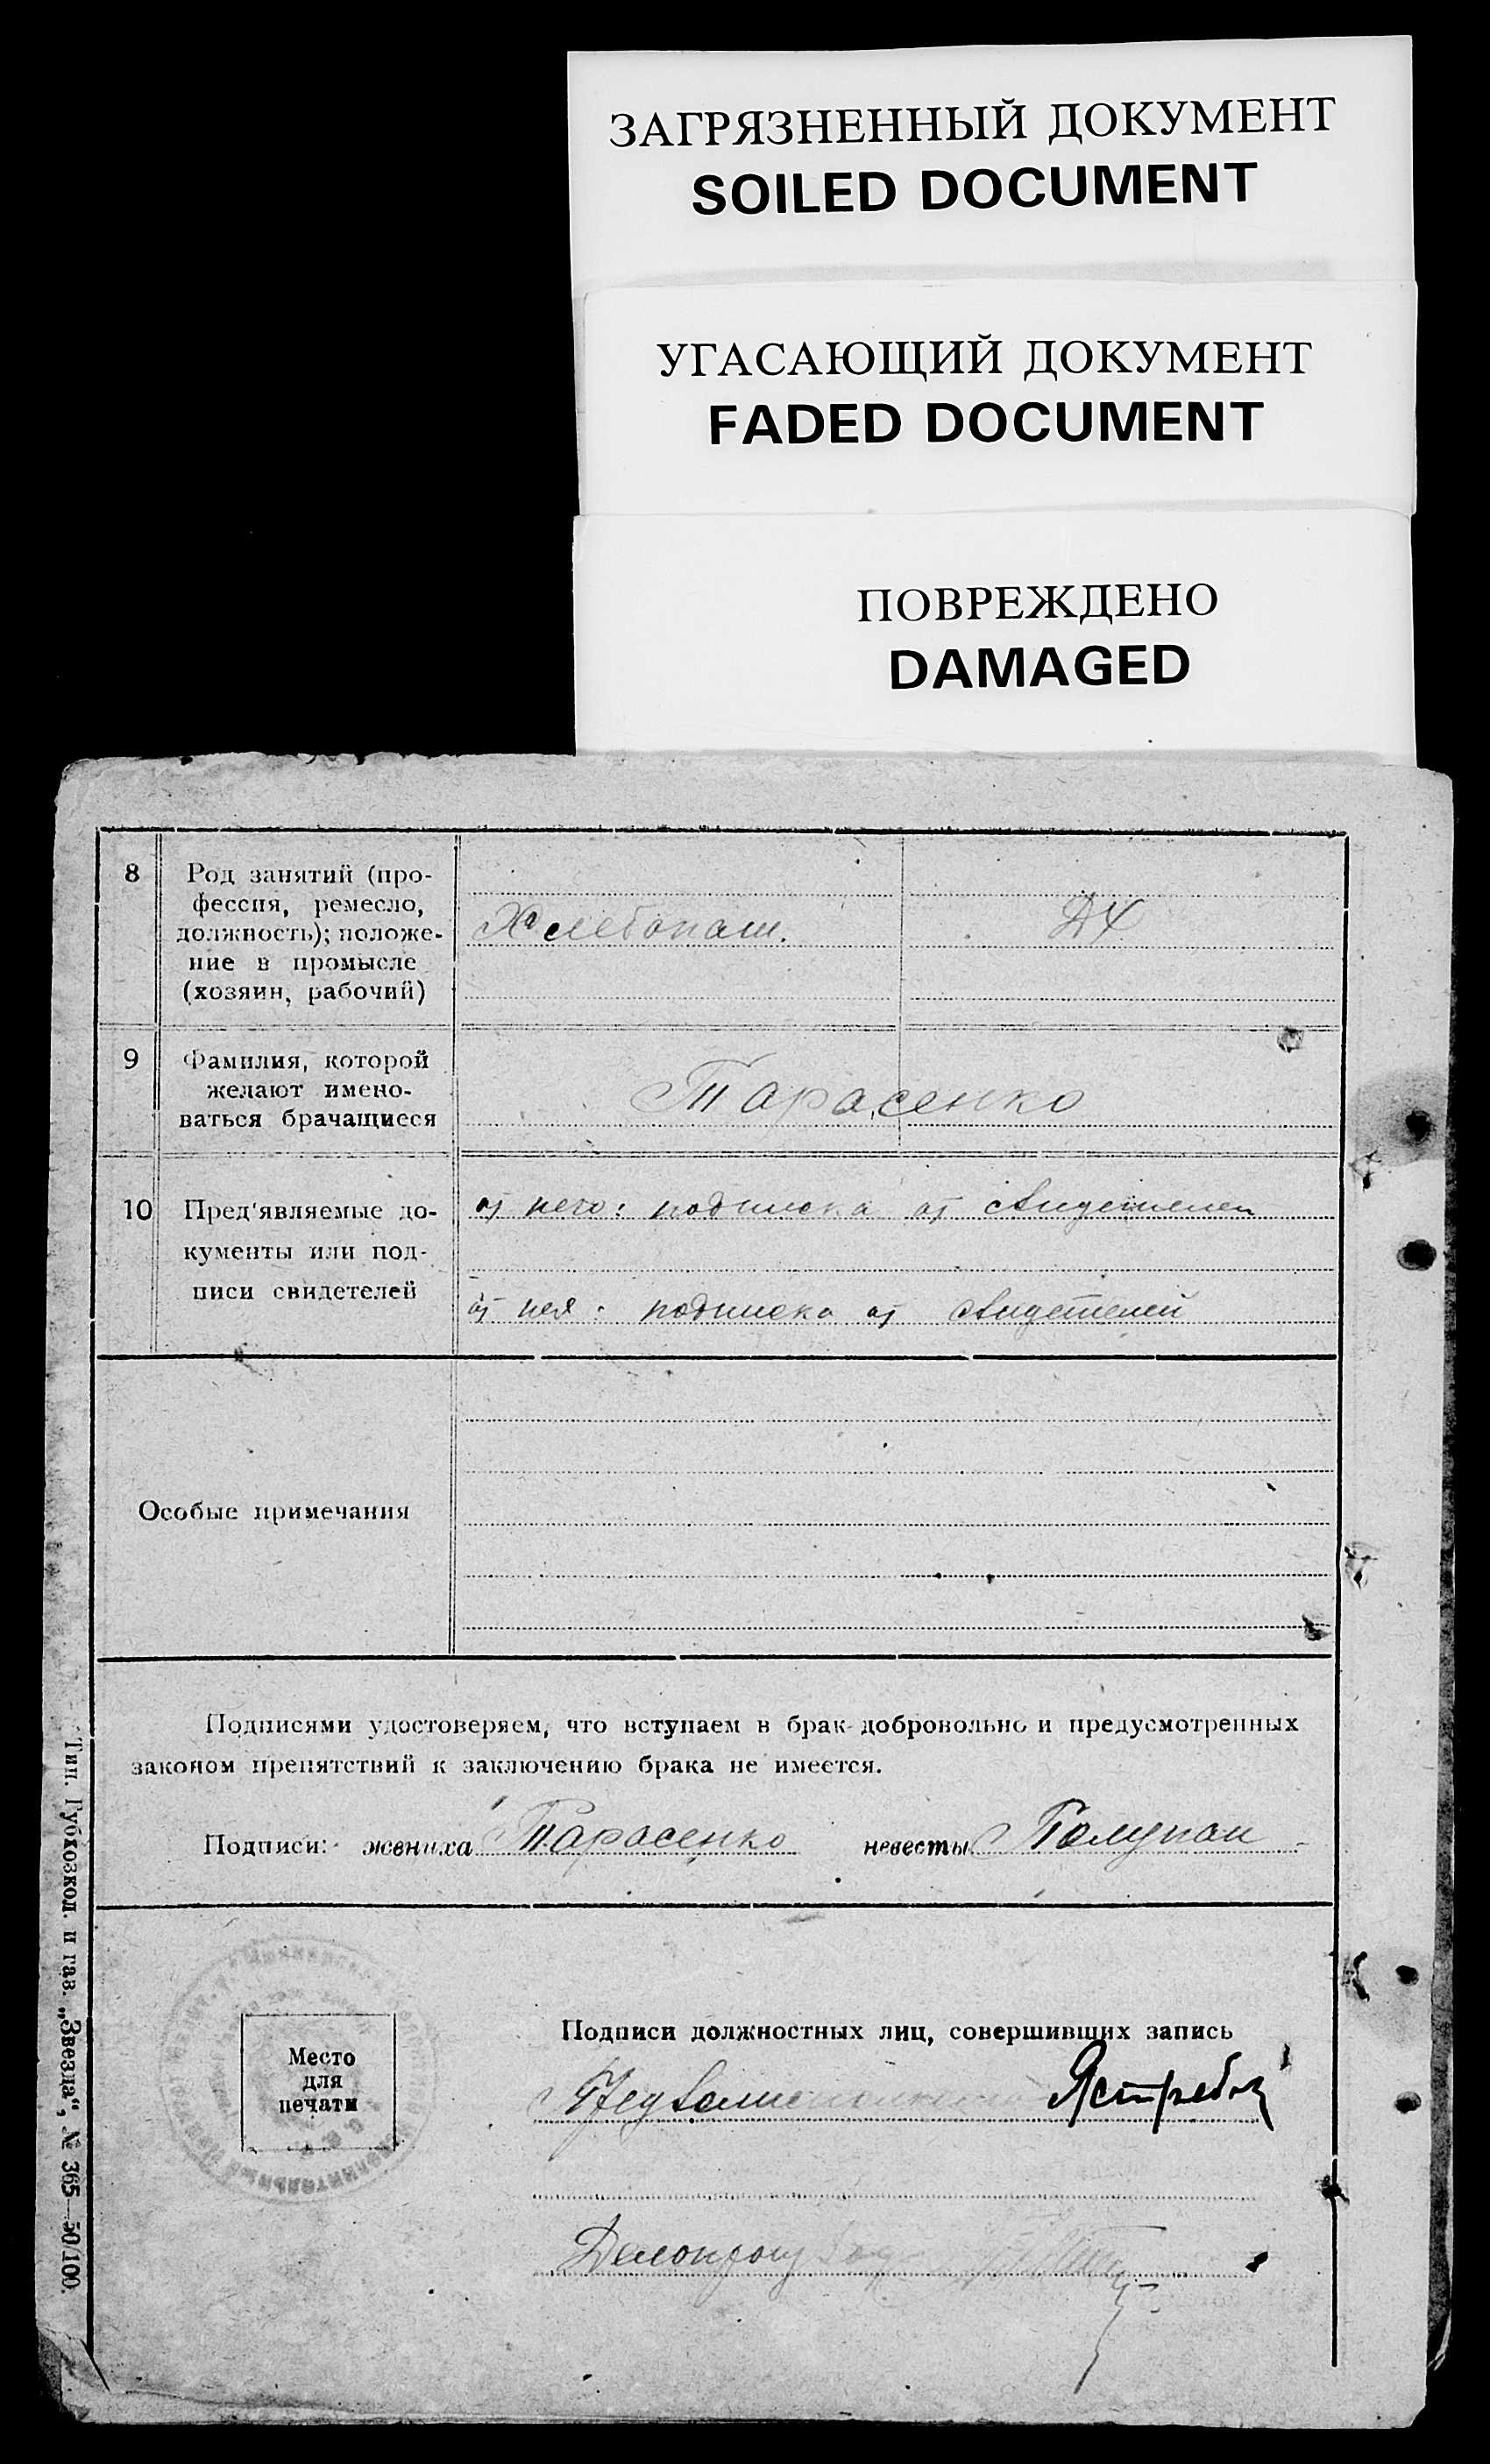 ЗАГРЯЗНЕННЫЙ ДОКУМЕНТ
SOILED DOCUMENT
УГАСАЮЩИЙ ДОКУМЕНТ
FADED DOCUMENT
ПОВРЕЖДЕНО
DAMAGED
8
Род занятий (про-
фессия, ремесло,
должность); положе-
ние в промысле
(хозяин, рабочий)
Хлебопаш.
ДХ
9
Фамилия, которой
желают имено-
ваться брачащиеся
Тарасенко
10
Пред'являемые до-
кументы или под-
писи свидетелей
от него: подписка от свидетелей
от нея: подписка от свидетелей
Особые примечания
Подписями удостоверяем, что вступаем в брак добровольно и предусмотренных
законом препятствий к заключению брака не имеется.
Подписи: жениха Тарасенко невесты Голупап
Место
для
печати
Подписи должностных лиц, совершивших запись
Предволисполкома Ястребов
Делопроизвод
Тип. Губхозкол. и газ. „Звезда“, № 365—50/100.